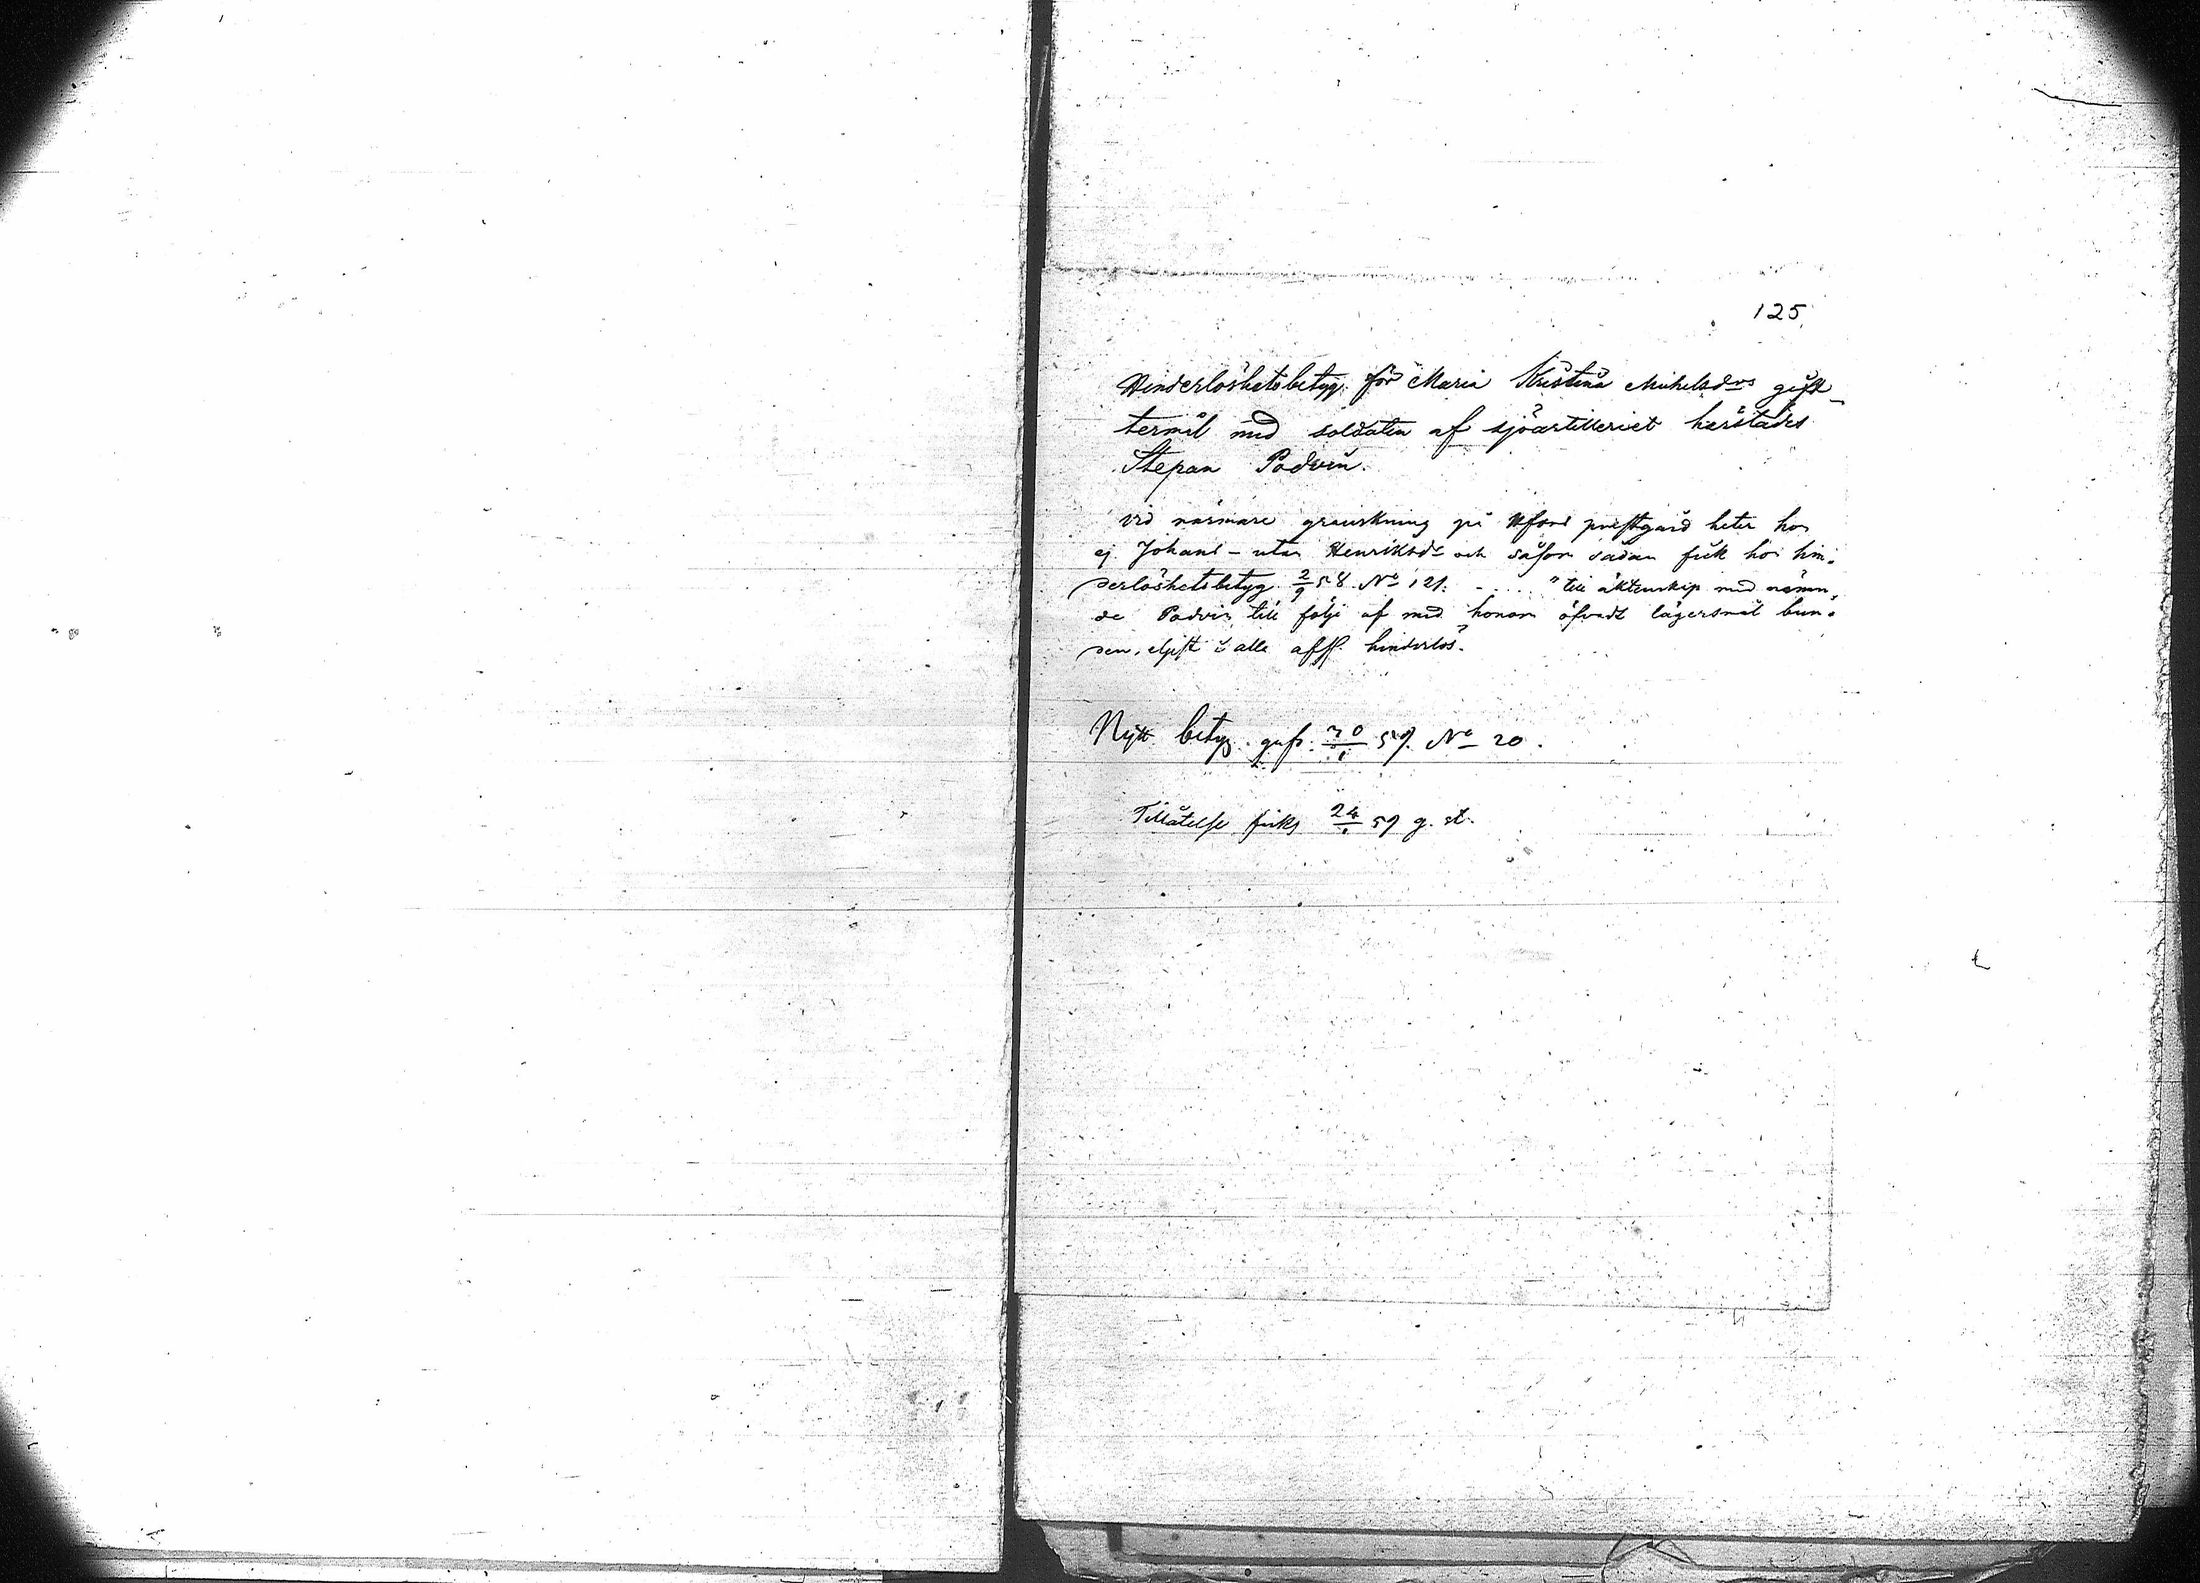 125.
Hinderlöshetsbetyg för Maria Kristina Mickelsdrs gift-
termål med soldaten af sjöartilleriet härstädes
Stepan Podvin.
vid närmare granskning på prestgård heter hon
ej Johans- utan Henriksdr och såsom sådan fick hon hin-
derlöshetsbetyg 2/9 58 No 121. - .... "till äktenskap med nämn-
de Podvin till följe af med honom öfvadt lägersmål bun-
den, eljest i alla aff. hinderlös".
Nytt betyg gafs 30/1 59. No 20.
Tillåtelse ficks 24/1 59 g. st.